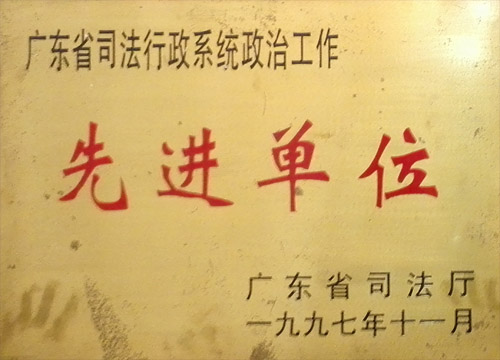 广东省司法行政系统政治工作
先进单位
广东省司法厅
一九九七年十一月